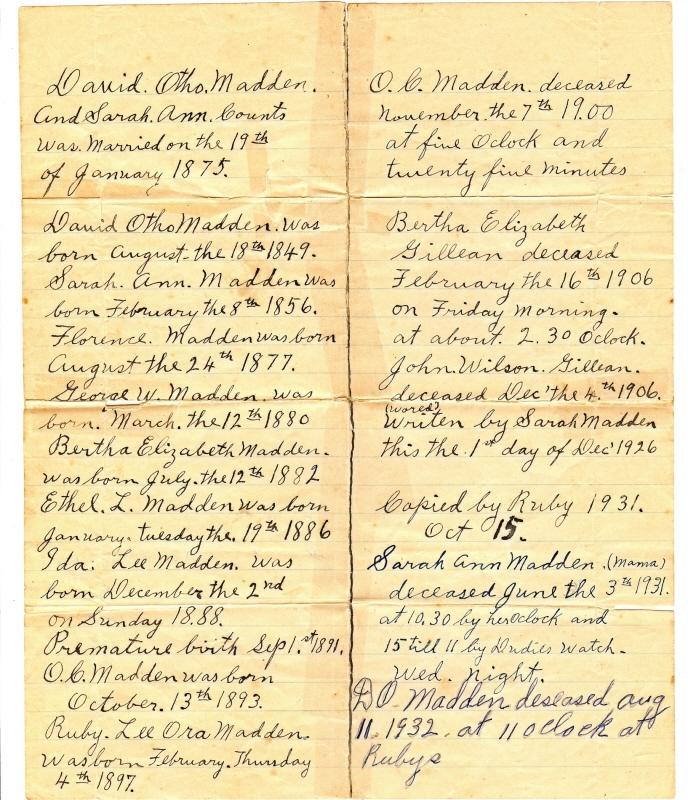 David. Otho. Madden.
And Sarah. Ann. Counts
was. Married on the 19th
of January 1875.
David Otho Madden. was
born August the 18th 1849.
Sarah. Ann. Madden was
born February the 8th 1856.
Florence. Madden was born
August the 24th 1877.
George W. Madden. was
born. March. the 12th 1880
Bertha Elizabeth Madden.
was born July. the 12th 1882
Ethel. L. Madden was born
January. tuesday the. 19th 1886
Ida. Lee Madden. was
born December the 2nd
on Sunday 18.88.
Premature birth Sep 1.st 1891.
O.C. Madden was born
October. 13th 1893.
Ruby. Lee Ora Madden.
was born February. Thursday
4th 1897.
O. C. Madden. deceased
November. the 7th 19.00
at five Oclock and
twenty five minutes
Bertha Elizabeth
Gillean deceased
February the 16th 1906
on Friday Morning.
at about. 2.30 Oclock.
John. Wilson. Gillean.
deceased Dec' the 4.th 1906.
Writen by Sarah Madden
this the. 1st day of Dec' 1926
Copied by Ruby 1931.
Oct 15.
Sarah Ann Madden. (Mama)
deceased June the 3th 1931.
at 10.30 by her Oclock and
15 till 11 by Dudies Watch.
Wed. night.
D O. Madden deseased aug
11. 1932. at 11 oclock at
Rubys